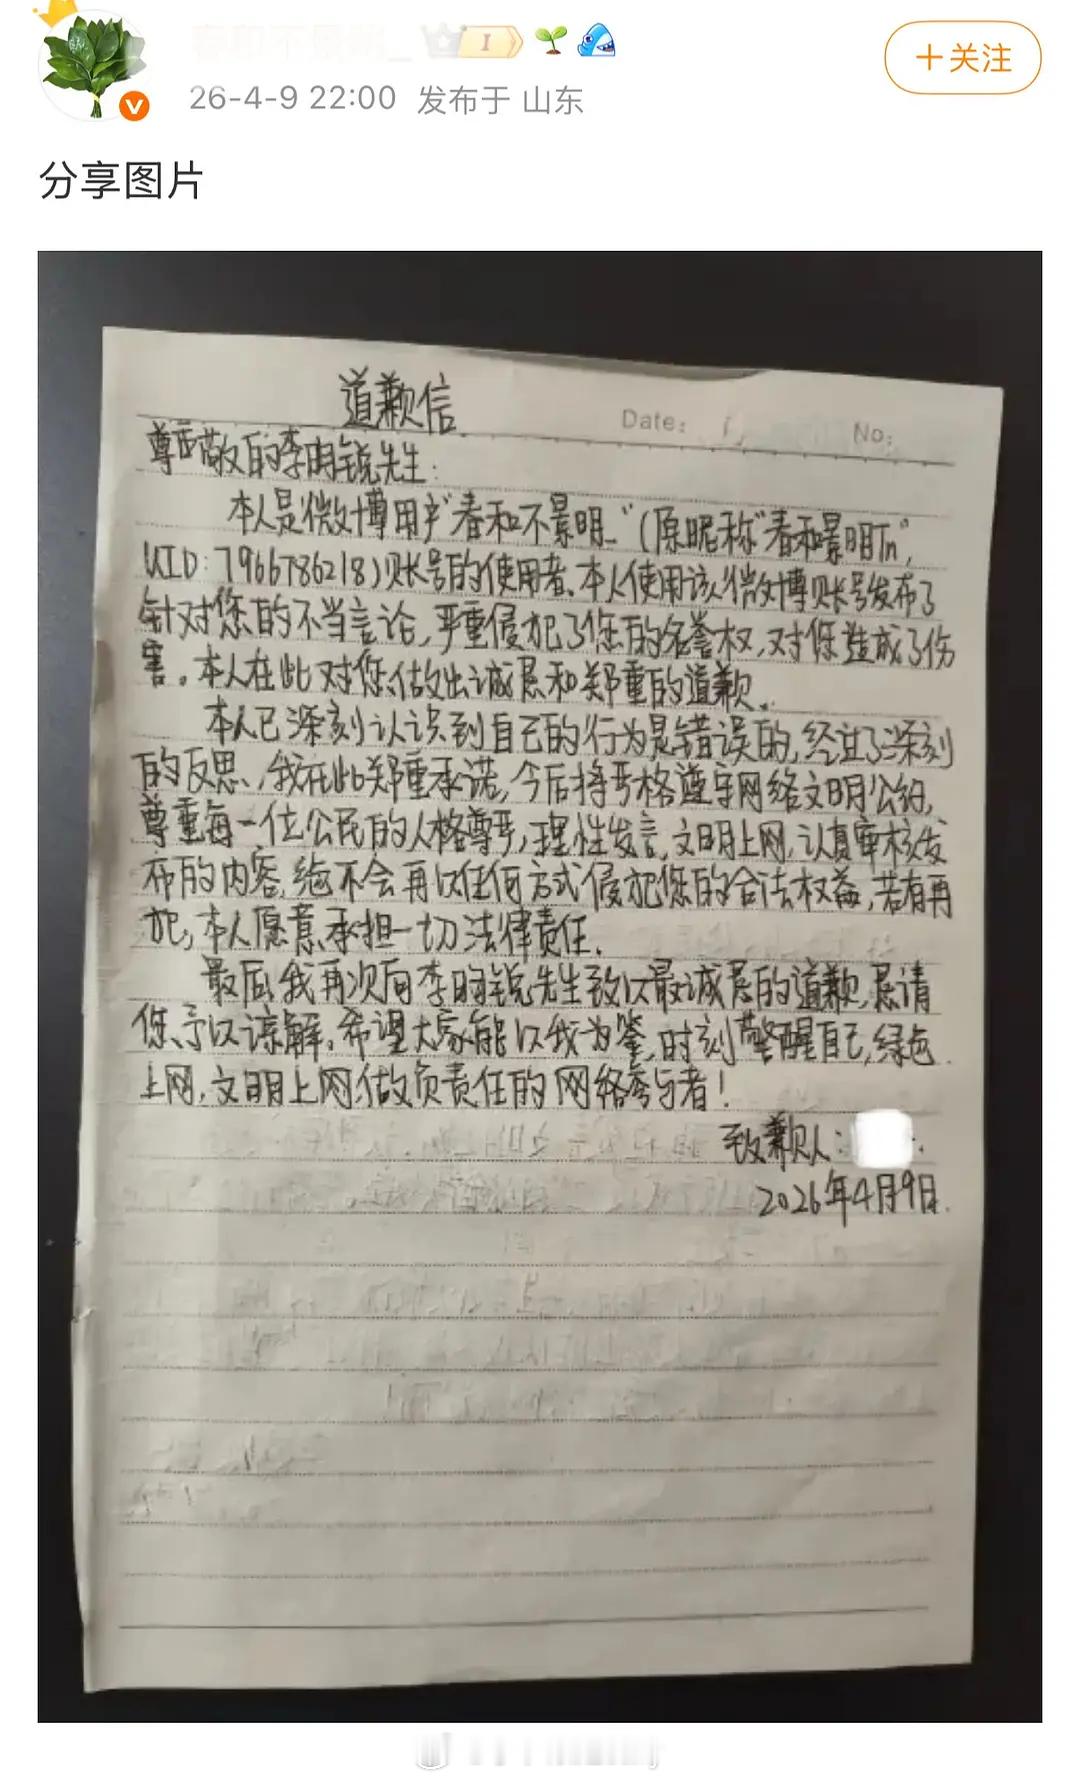 I
26-4-9 22:00 发布于 山东
+关注
分享图片
道歉信
Date:
No:
尊敬的李昀锐先生:
本人是微博用户“春和不景明_”(原昵称“春和景明Tn”,
UID:7966786218)账号的使用者、本人使用该微博账号发布了
针对您的不当言论,严重侵犯了您的名誉权,对您造成了伤
害。本人在此对您做出诚恳和郑重的道歉。
本人已深刻认识到自己的行为是错误的,经过了深刻
的反思,我在此郑重承诺,今后将严格遵守网络文明公约,
尊重每一位公民的人格尊严,理性发言,文明上网,认真审核发
布的内容,绝不会再以任何方式侵犯您的合法权益,若有再
犯,本人愿意承担一切法律责任.
最后,我再次向李昀锐先生致以最诚恳的道歉,恳请
您予以谅解。希望大家能以我为鉴,时刻警醒自己,绿色
上网,文明上网,做负责任的网络参与者!
致歉人:
2026年4月9日.